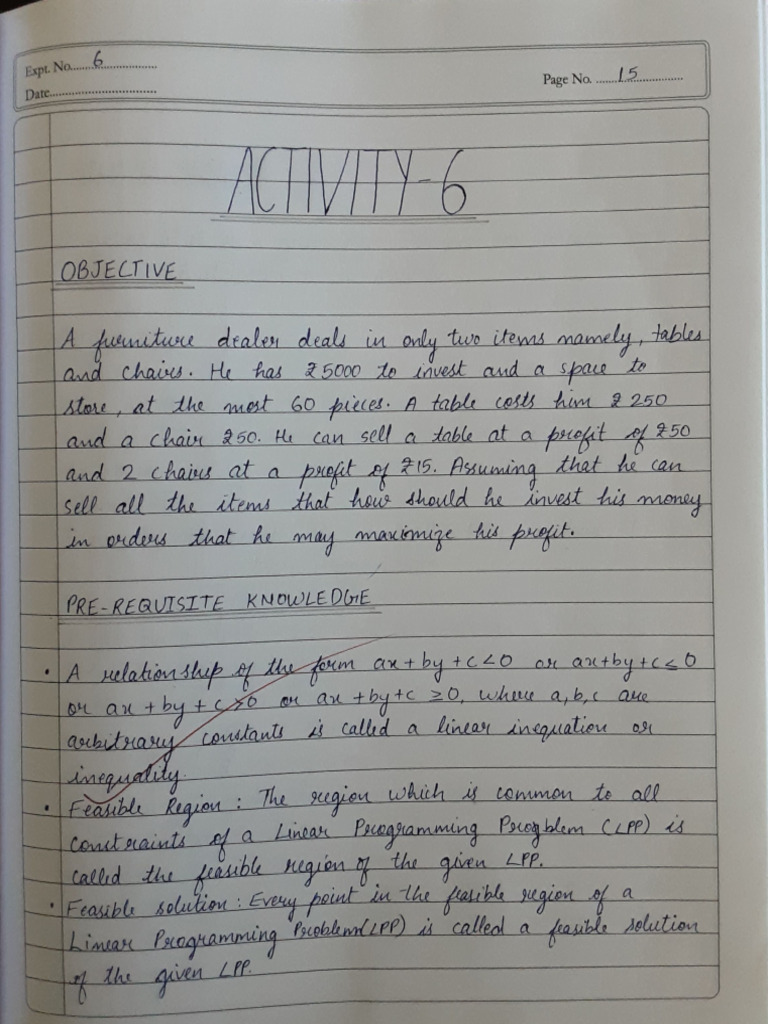 Expt. No. 6
Date
Page No. 15
ACTIVITY-6
OBJECTIVE
A furniture dealer deals in only two items namely, tables
and chairs. He has ₹5000 to invest and a space to
store, at the most 60 pieces. A table costs him ₹250
and a chair ₹50. He can sell a table at a profit of ₹50
and 2 chairs at a profit of ₹15. Assuming that he can
sell all the items that how should he invest his money
in orders that he may maximize his profit.
PRE-REQUISITE KNOWLEDGE
• A relationship of the form ax+by+c<0 or ax+by+c≤0
or ax+by+c>0 or ax+by+c≥0, where a,b,c are
arbitrary constants is called a linear inequation or
inequality.
• Feasible Region: The region which is common to all
constraints of a Linear Programming Problem (LPP) is
called the feasible region of the given LPP.
• Feasible solution: Every point in the feasible region of a
Linear Programming Problem(LPP) is called a feasible solution
of the given LPP.